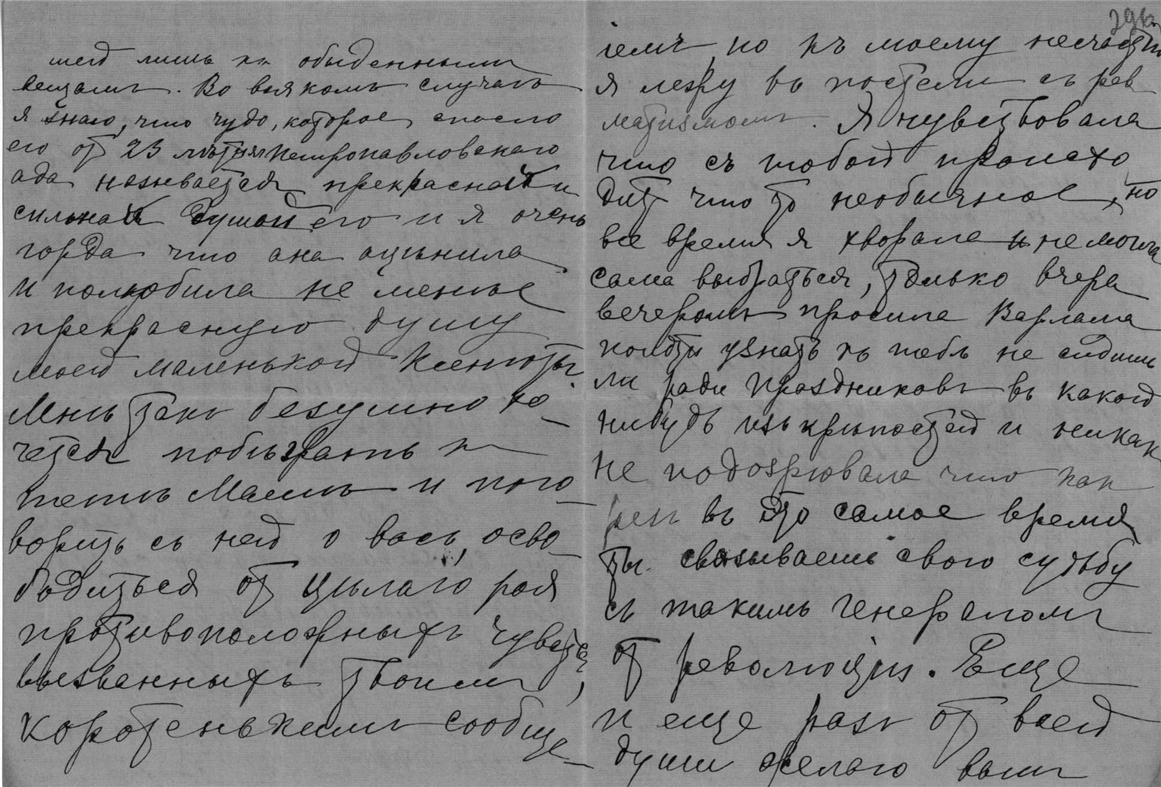 шей лишь къ обыденнымъ
вещамъ. Во всякомъ случаѣ
я знаю, что чудо, которое спасло
его от 23 лѣтняго Петропавловскаго
ада называется прекрасной и
сильной душой его и я очень
горда что она оцѣнила
и полюбила не менѣе
прекрасную душу
моей маленькой Ксеньюты.
Мнѣ такъ безумно хо-
чется побѣжать къ
тетѣ Машѣ и пого-
ворить съ ней о васъ, осво-
бодиться от цѣлаго роя
противоположныхъ чувствъ,
вызванныхъ твоимъ
коротенькимъ сообще-
296
ніемъ, но къ моему несчастью
я лежу въ постели съ рев
матизмомъ. Я чувствовала
что съ тобой происхо
дит что то необычное, но
все время я хворала и не могла
сама выбраться, только вчера
вечеромъ просила Варлама
пойти узнать къ тебѣ не сидишь
ли ради праздниковъ въ какой
нибудь изъ крѣпостей и никакъ
не подозрѣвала что как
разъ въ это самое время
ты связываешь свою судьбу
съ такимъ генераломъ
от революціи. Еще
и еще разъ от всей
души желаю вамъ